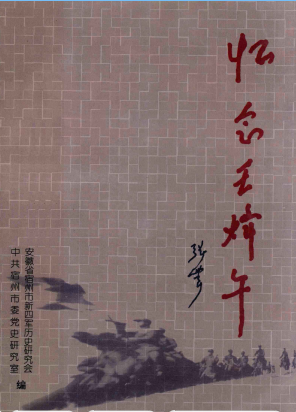 怀念王烽午
安徽省宿州市新四军历史研究会
中共宿州市委党史研究室
编